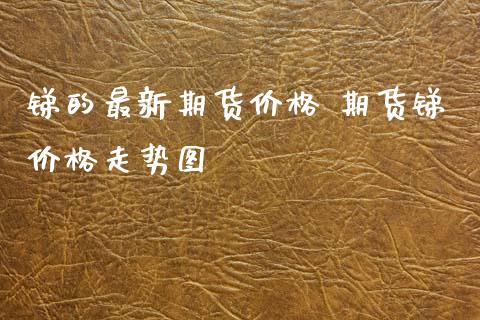 锑的最新期货价格 期货锑
价格走势图